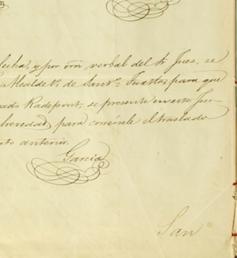 fecha, y por orn verbal del Sr Juez, se
Alcalde Vo de Santo Justo, para que
Radepont, se presente en este Juz-
brevedad, para correrle el traslado
anterior.
Garcia
San